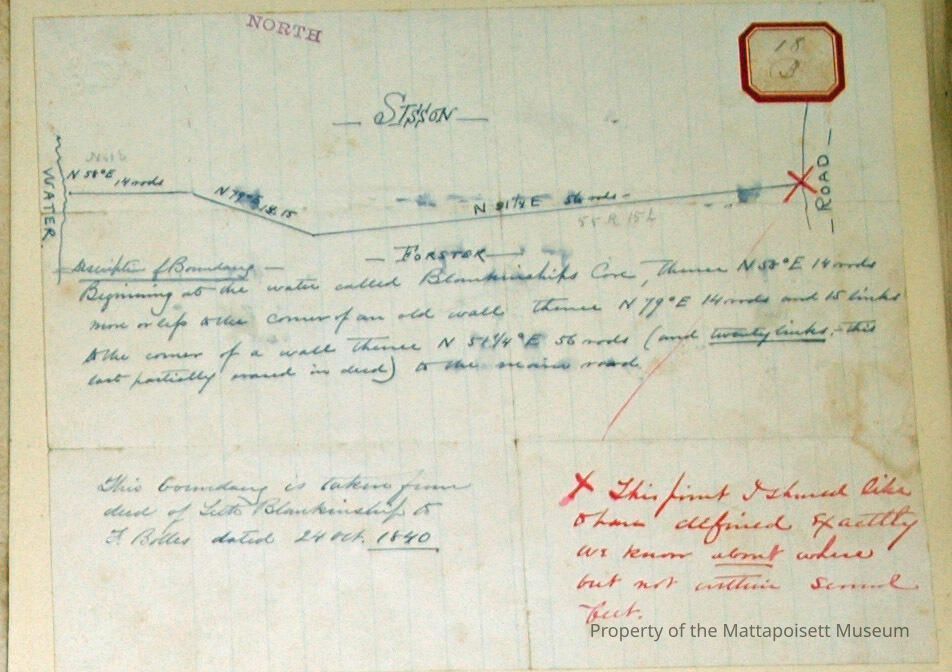 NORTH
18
B
— SISSON —
No 18
N 58°E 14 rods
N 79°E 14R.15
N 51¼ E 56 rods -
55 R 15 L
WATER.
— ROAD —
— FORSTER —
Description of Boundary —
Beginning at the water called Blankinships Cove, thence N 58°E 14 rods
more or less to the corner of an old wall thence N 79°E 14 rods and 15 links
to the corner of a wall thence N 51¼°E 56 rods (and twenty links, - this
last partially erased in deed) to the main road.
This boundary is taken from
deed of Seth Blankinship to
F. Bolles dated 24 Oct. 1840
X This point I should like
to have defined Exactly
we know about where
but not within several
feet.
Property of the Mattapoisett Museum